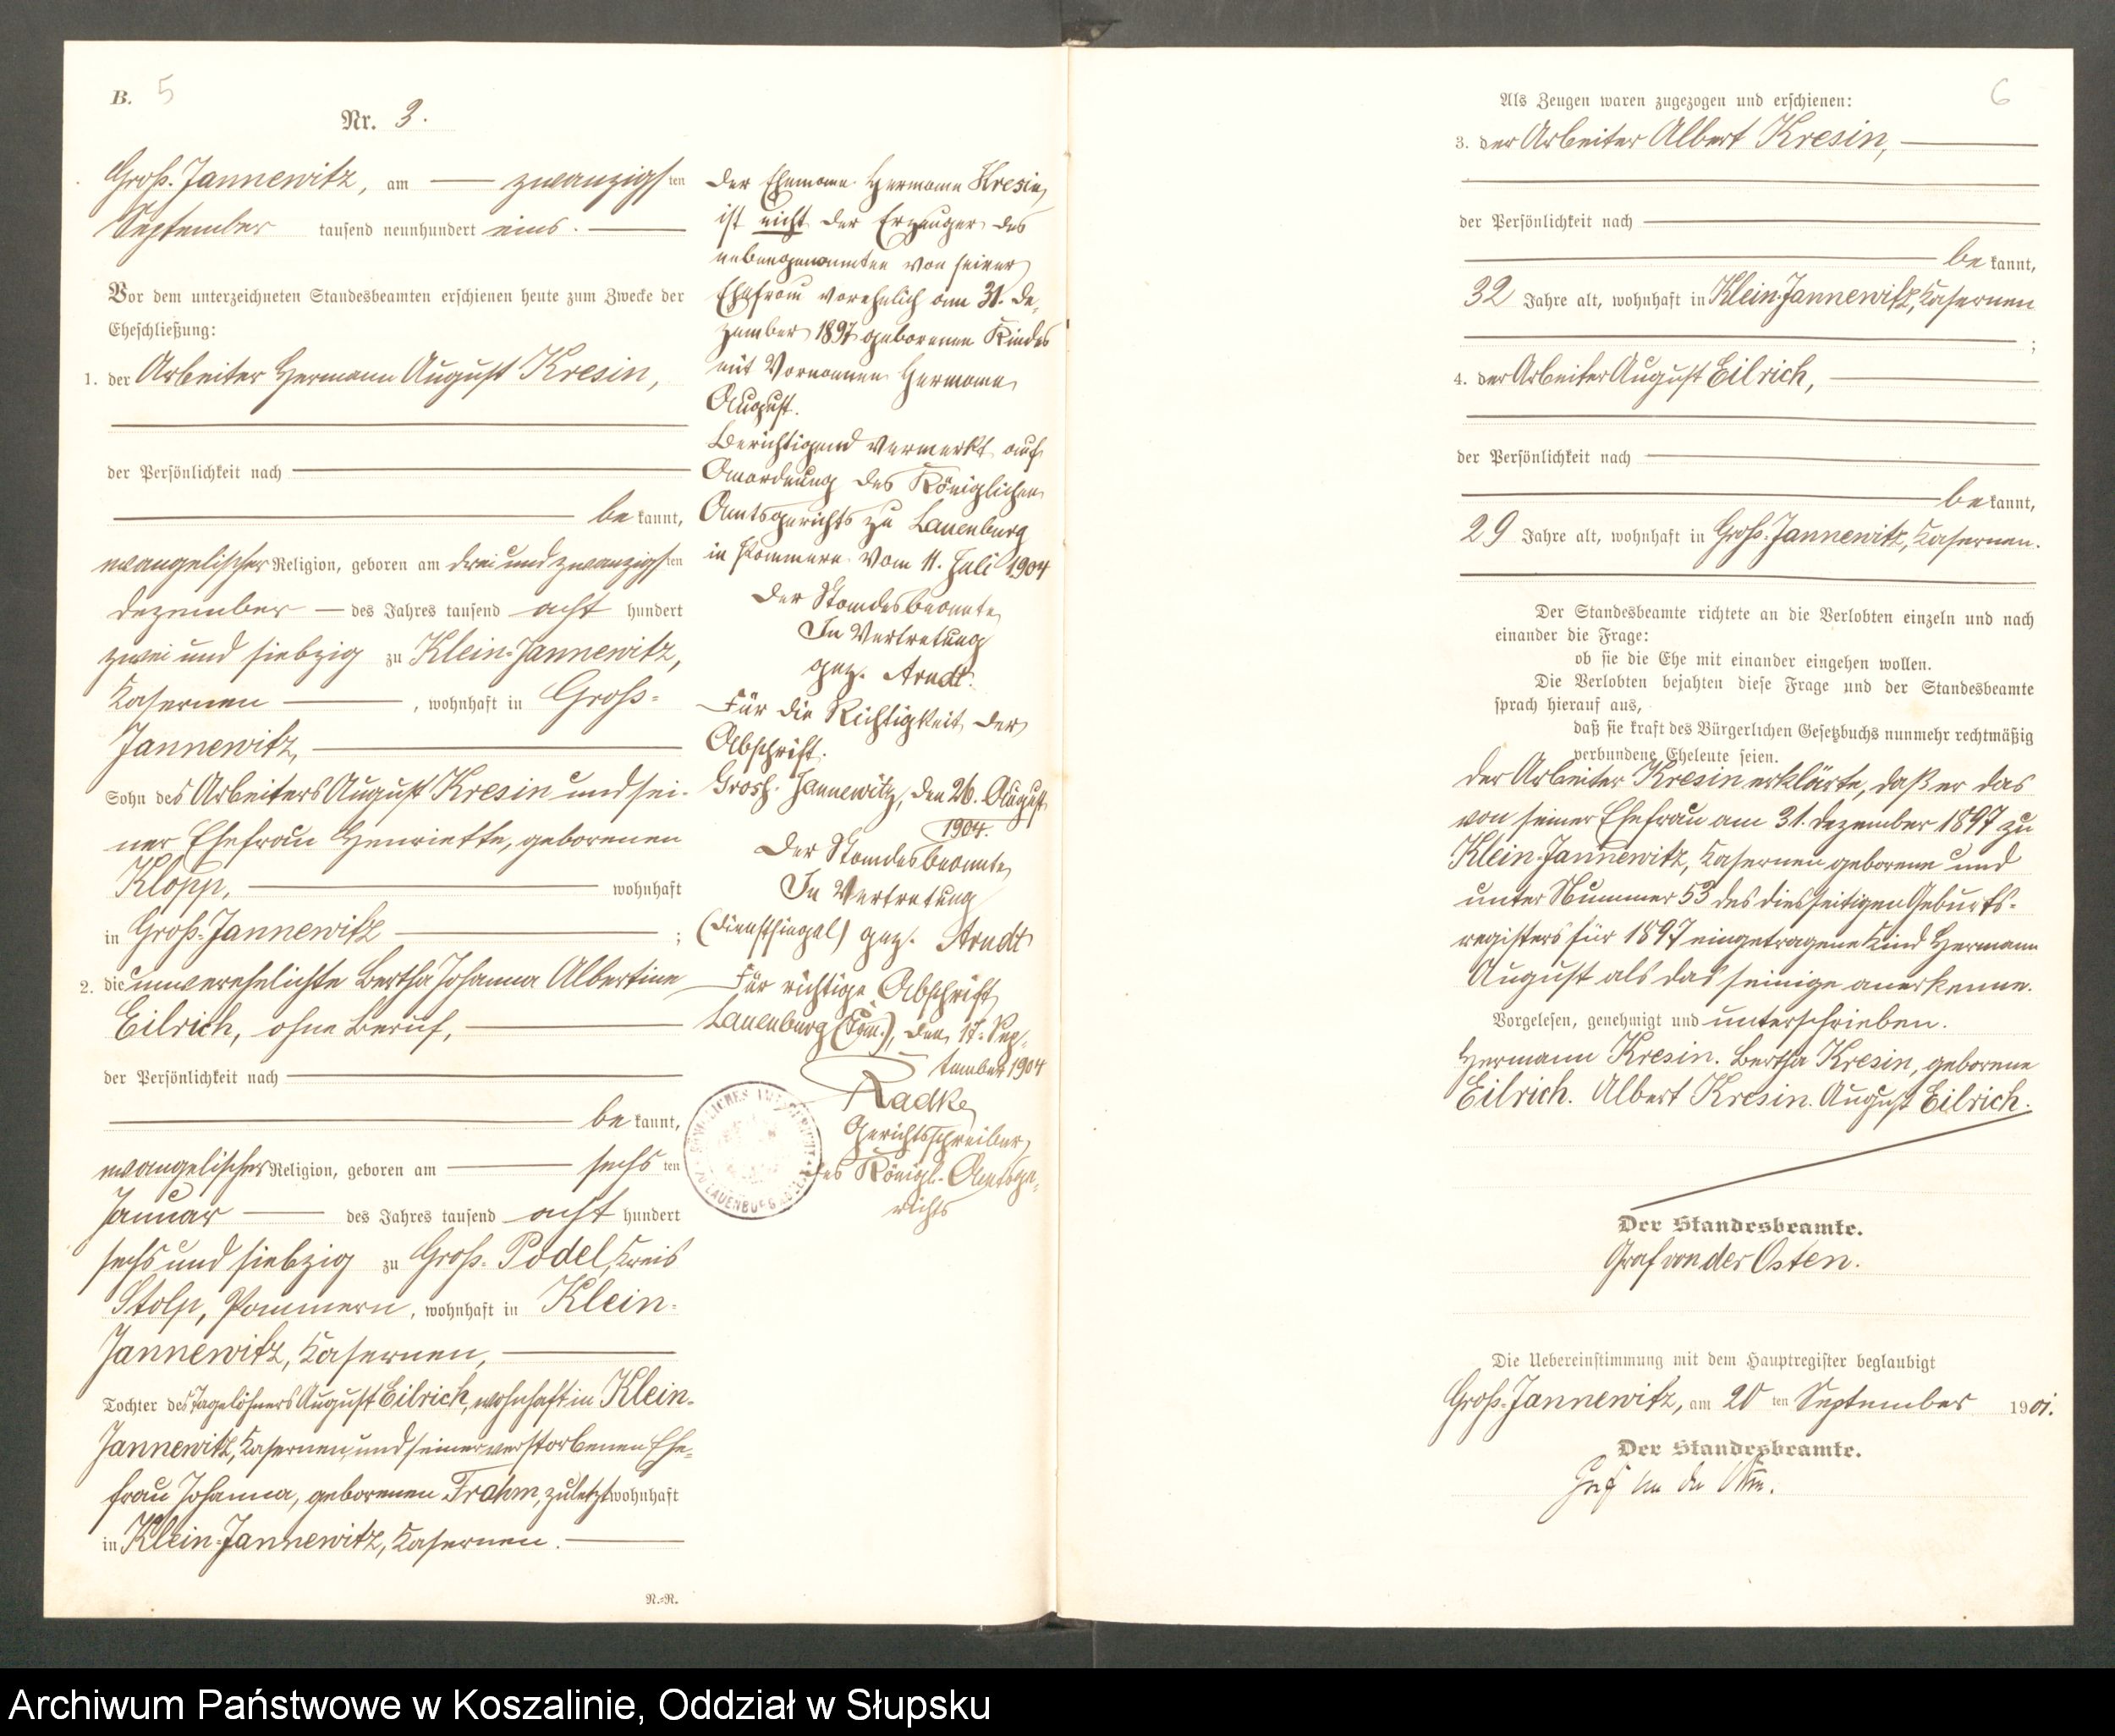 B. 5
Nr. 3.
Groß-Jannewitz, am zwanzigsten
September tausend neunhundert eins.
Vor dem unterzeichneten Standesbeamten erschienen heute zum Zwecke der
Eheschließung:
1. der Arbeiter Hermann August Kresin,
der Persönlichkeit nach
be kannt,
evangelischer Religion, geboren am drei und zwanzigsten
Dezember des Jahres tausend acht hundert
zwei und siebzig zu Klein-Jannewitz,
Kasernen, wohnhaft in Groß-
Jannewitz,
Sohn des Arbeiters August Kresin und sei-
ner Ehefrau Henriette, geborenen
Klopp, wohnhaft
in Groß-Jannewitz;
2. die unverehelichte Bertha Johanna Albertine
Eilrich, ohne Beruf,
der Persönlichkeit nach
be kannt,
evangelischer Religion, geboren am sechsten
Januar des Jahres tausend acht hundert
sechs und siebzig zu Groß-Podel, Kreis
Stolp, Pommern, wohnhaft in Klein-
Jannewitz, Kasernen,
Tochter des Tagelöhners August Eilrich, wohnhaft in Klein-
Jannewitz, Kasernen, und seiner verstorbenen Ehe-
frau Johanna, geborenen Frahm, zuletzt wohnhaft
in Klein-Jannewitz, Kasernen.
N.-N.
Der Ehemann Hermann Kresin,
ist nicht der Erzeuger des
nebengenannten von seiner
Ehefrau vorehelich am 31. De-
zember 1897 geborenen Kindes
mit Vornamen Hermann
August.
Berichtigend vermerkt auf
Anordnung des Königlichen
Amtsgerichts zu Lauenburg
in Pommern vom 11. Juli 1904
Der Standesbeamte
In Vertretung
gez. Arndt.
Für die Richtigkeit der
Abschrift.
Gross-Jannewitz, den 26. August
1904.
Der Standesbeamte
In Vertretung
(Dienstsiegel) gez. Arndt
Für richtige Abschrift
Lauenburg (Pom.), den 17. Sep-
tember 1904
Radke
Gerichtsschreiber
des Königl. Amtsge-
richts
6
Als Zeugen waren zugezogen und erschienen:
3. der Arbeiter Albert Kresin,
der Persönlichkeit nach
be kannt,
32 Jahre alt, wohnhaft in Klein-Jannewitz, Kasernen
;
4. der Arbeiter August Eilrich,
der Persönlichkeit nach
be kannt,
29 Jahre alt, wohnhaft in Groß-Jannewitz, Kasernen.
Der Standesbeamte richtete an die Verlobten einzeln und nach
einander die Frage:
ob sie die Ehe mit einander eingehen wollen.
Die Verlobten bejahten diese Frage und der Standesbeamte
sprach hierauf aus,
daß sie kraft des Bürgerlichen Gesetzbuchs nunmehr rechtmäßig
verbundene Eheleute seien.
Der Arbeiter Kresin erklärte, daß er das
von seiner Ehefrau am 31. Dezember 1897 zu
Klein-Jannewitz, Kasernen geborene und
unter Nummer 53 des diesseitigen Geburts-
registers für 1897 eingetragene Kind Hermann
August als das seinige anerkenne.
Vorgelesen, genehmigt und unterschrieben.
Hermann Kresin. Bertha Kresin, geborene
Eilrich. Albert Kresin. August Eilrich.
Der Standesbeamte.
Graf von der Osten.
Die Uebereinstimmung mit dem Hauptregister beglaubigt
Groß-Jannewitz, am 20ten September 1901.
Der Standesbeamte.
Graf von der Osten.
Archiwum Państwowe w Koszalinie, Oddział w Słupsku